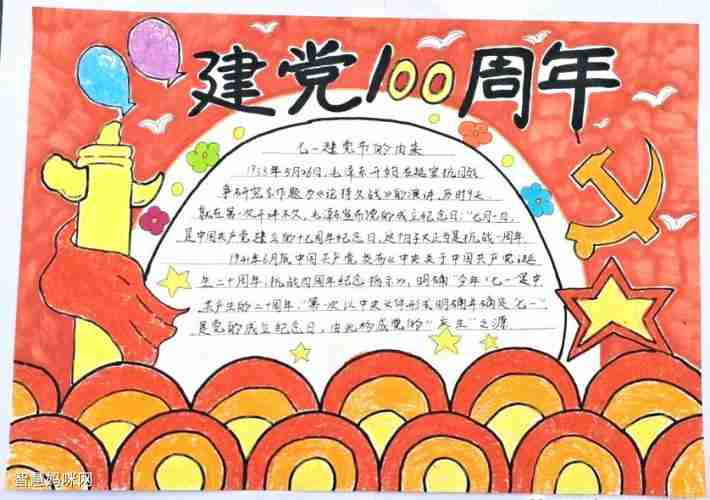 建党100周年
七一建党节的由来
1938年5月26日,毛泽东开始在延安抗日战
争研究会作题为《论持久战》的演讲,历时9天
就在第一次干讲不久,毛泽东宣布党的成立纪念日:"七月一日,
是中国共产党建立的十七周年纪念日,这个日子又正当是抗战一周年.
1941年6月底中国共产党 发布《中央关于中国共产党诞
生二十周年,抗战四周年纪念指示》,明确"今年七一是中
共产生的二十周年,"第一次以中央文件形式明确年确定"七一"
是党的成立纪念日,由此构成党的"诞生"之源
智慧妈咪网